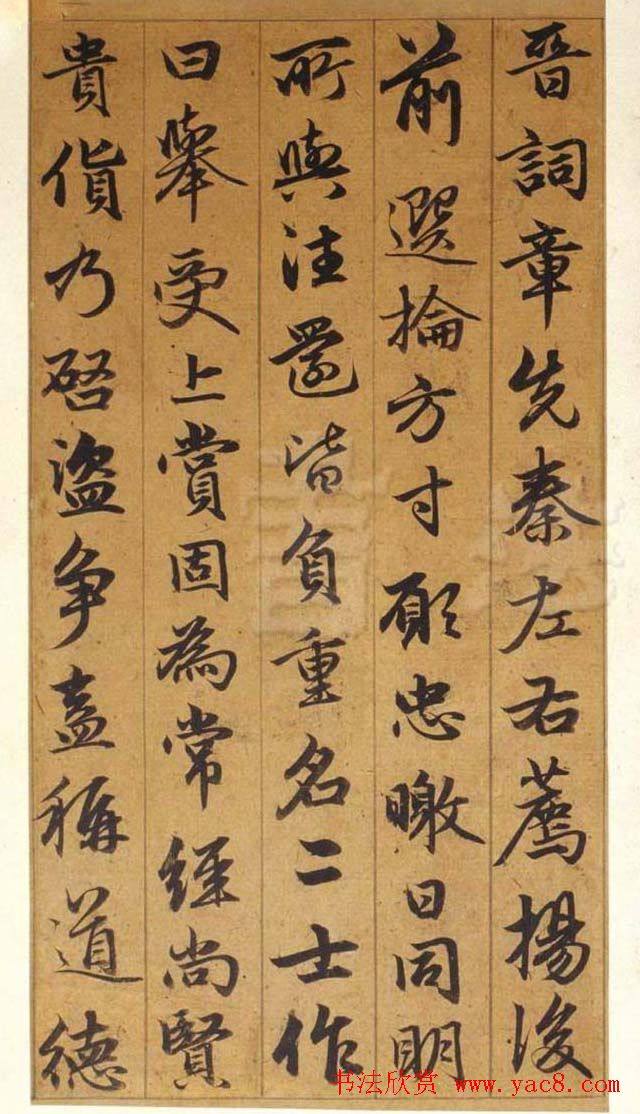 晉詞章先秦左右薦揚後
前選掄方寸願忠曒日同明
所與注罢皆負重名二士作
曰舉受上賞固為常經尚賢
貴貨乃啓盜争盍稱道德
书法欣赏 www.yac8.com